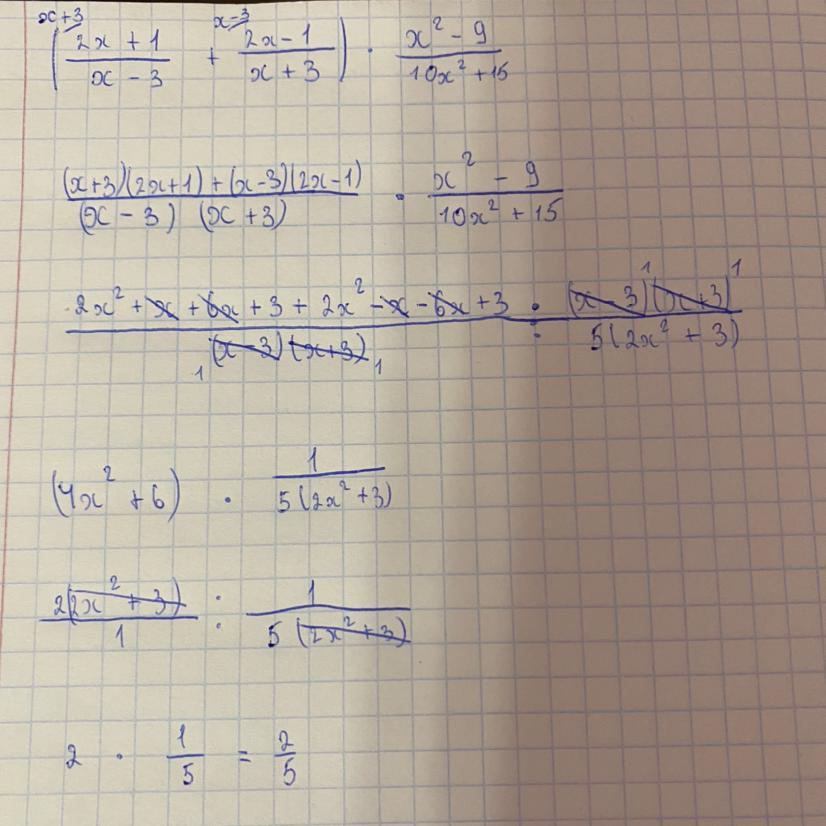 x+3 x-3
( (2x + 1)/(x - 3) + (2x - 1)/(x + 3) ) · (x² - 9)/(10x² + 15)
((x+3)(2x+1) + (x-3)(2x-1))/((x - 3) (x + 3)) · (x² - 9)/(10x² + 15)
(2x² + x + 6x + 3 + 2x² - x - 6x + 3)/(1 (x-3) (x+3) 1) : ((x-3) 1 (x+3) 1)/(5(2x² + 3))
(4x² + 6) · 1/(5(2x² + 3))
(2(2x² + 3))/1 : 1/(5 (2x² + 3))
2 · 1/5 = 2/5